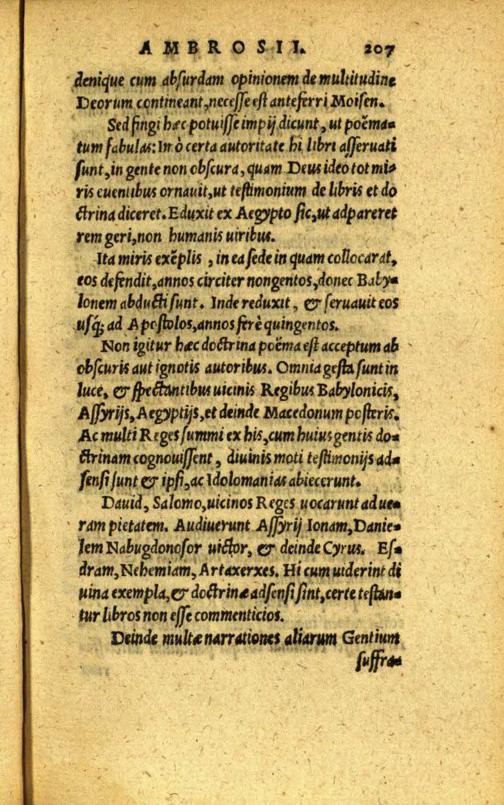 AMBROSII. 207
denique cum absurdam opinionem de multitudine
Deorum contineant, necesse est anteferri Moisen.
Sed fingi hæc potuisse impij dicunt, ut poëma=
tum fabulas: Imò certa autoritate hi libri asseruati
sunt, in gente non obscura, quam Deus ideo tot mi=
ris euentibus ornauit, ut testimonium de libris et do
ctrina diceret. Eduxit ex Aegypto sic, ut adpareret
rem geri, non humanis uiribus.
Ita miris exẽplis, in ea sede in quam collocarat,
eos defendit, annos circiter nongentos, donec Baby=
lonem abducti sunt. Inde reduxit, & seruauit eos
usq; ad Apostolos, annos ferè quingentos.
Non igitur hæc doctrina poëma est acceptum ab
obscuris aut ignotis autoribus. Omnia gesta sunt in
luce, & spectantibus uicinis Regibus Babylonicis,
Assyrijs, Aegyptijs, et deinde Macedonum posteris.
Ac multi Reges summi ex his, cum huius gentis do=
ctrinam cognouissent, diuinis moti testimonijs ad=
sensi sunt & ipsi, ac Idolomanias abiecerunt.
Dauid, Salomo, uicinos Reges uocarunt ad ue=
ram pietatem. Audiuerunt Assyrij Ionam, Danie=
lem Nabugdonosor uictor, & deinde Cyrus. Es=
dram, Nehemiam, Artaxerxes. Hi cum uiderint di
uina exempla, & doctrinæ adsensi sint, certe testan=
tur libros non esse commenticios.
Deinde multæ narrationes aliarum Gentium
suffra=